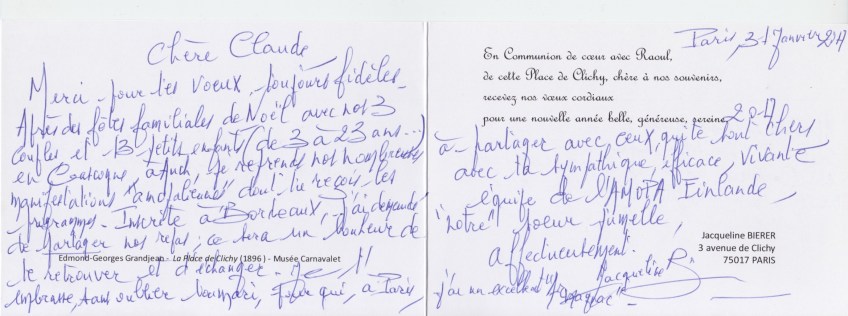 Chère Claude
Merci pour tes voeux, toujours fidèles.
Après des fêtes familiales de Noël avec nos 3
couples et 13 petits enfants (de 3 à 23 ans...)
en Gascogne, à Auch, je reprends nos nombreuses
manifestations "amopaliennes" dont tu reçois les
programmes. Inscrite à Bordeaux, j'ai demandé
de partager nos repas; ce sera un bonheur de
Edmond-Georges Grandjean - La Place de Clichy (1896) - Musée Carnavalet
te retrouver et d'échanger. Je
embrasse, sans oublier à Paris,
Paris, 31 Janvier 2017
En Communion de cœur avec Raoul,
de cette Place de Clichy, chère à nos souvenirs,
recevez nos vœux cordiaux
pour une nouvelle année belle, généreuse, sereine 2017
à partager avec ceux qui te sont chers
avec ta sympathique, efficace, vivante
équipe de l'AMOPA Finlande,
"notre" soeur jumelle,
Affectueusement.
Jacqueline B
j'ai un excellent
Jacqueline BIERER
3 avenue de Clichy
75017 PARIS